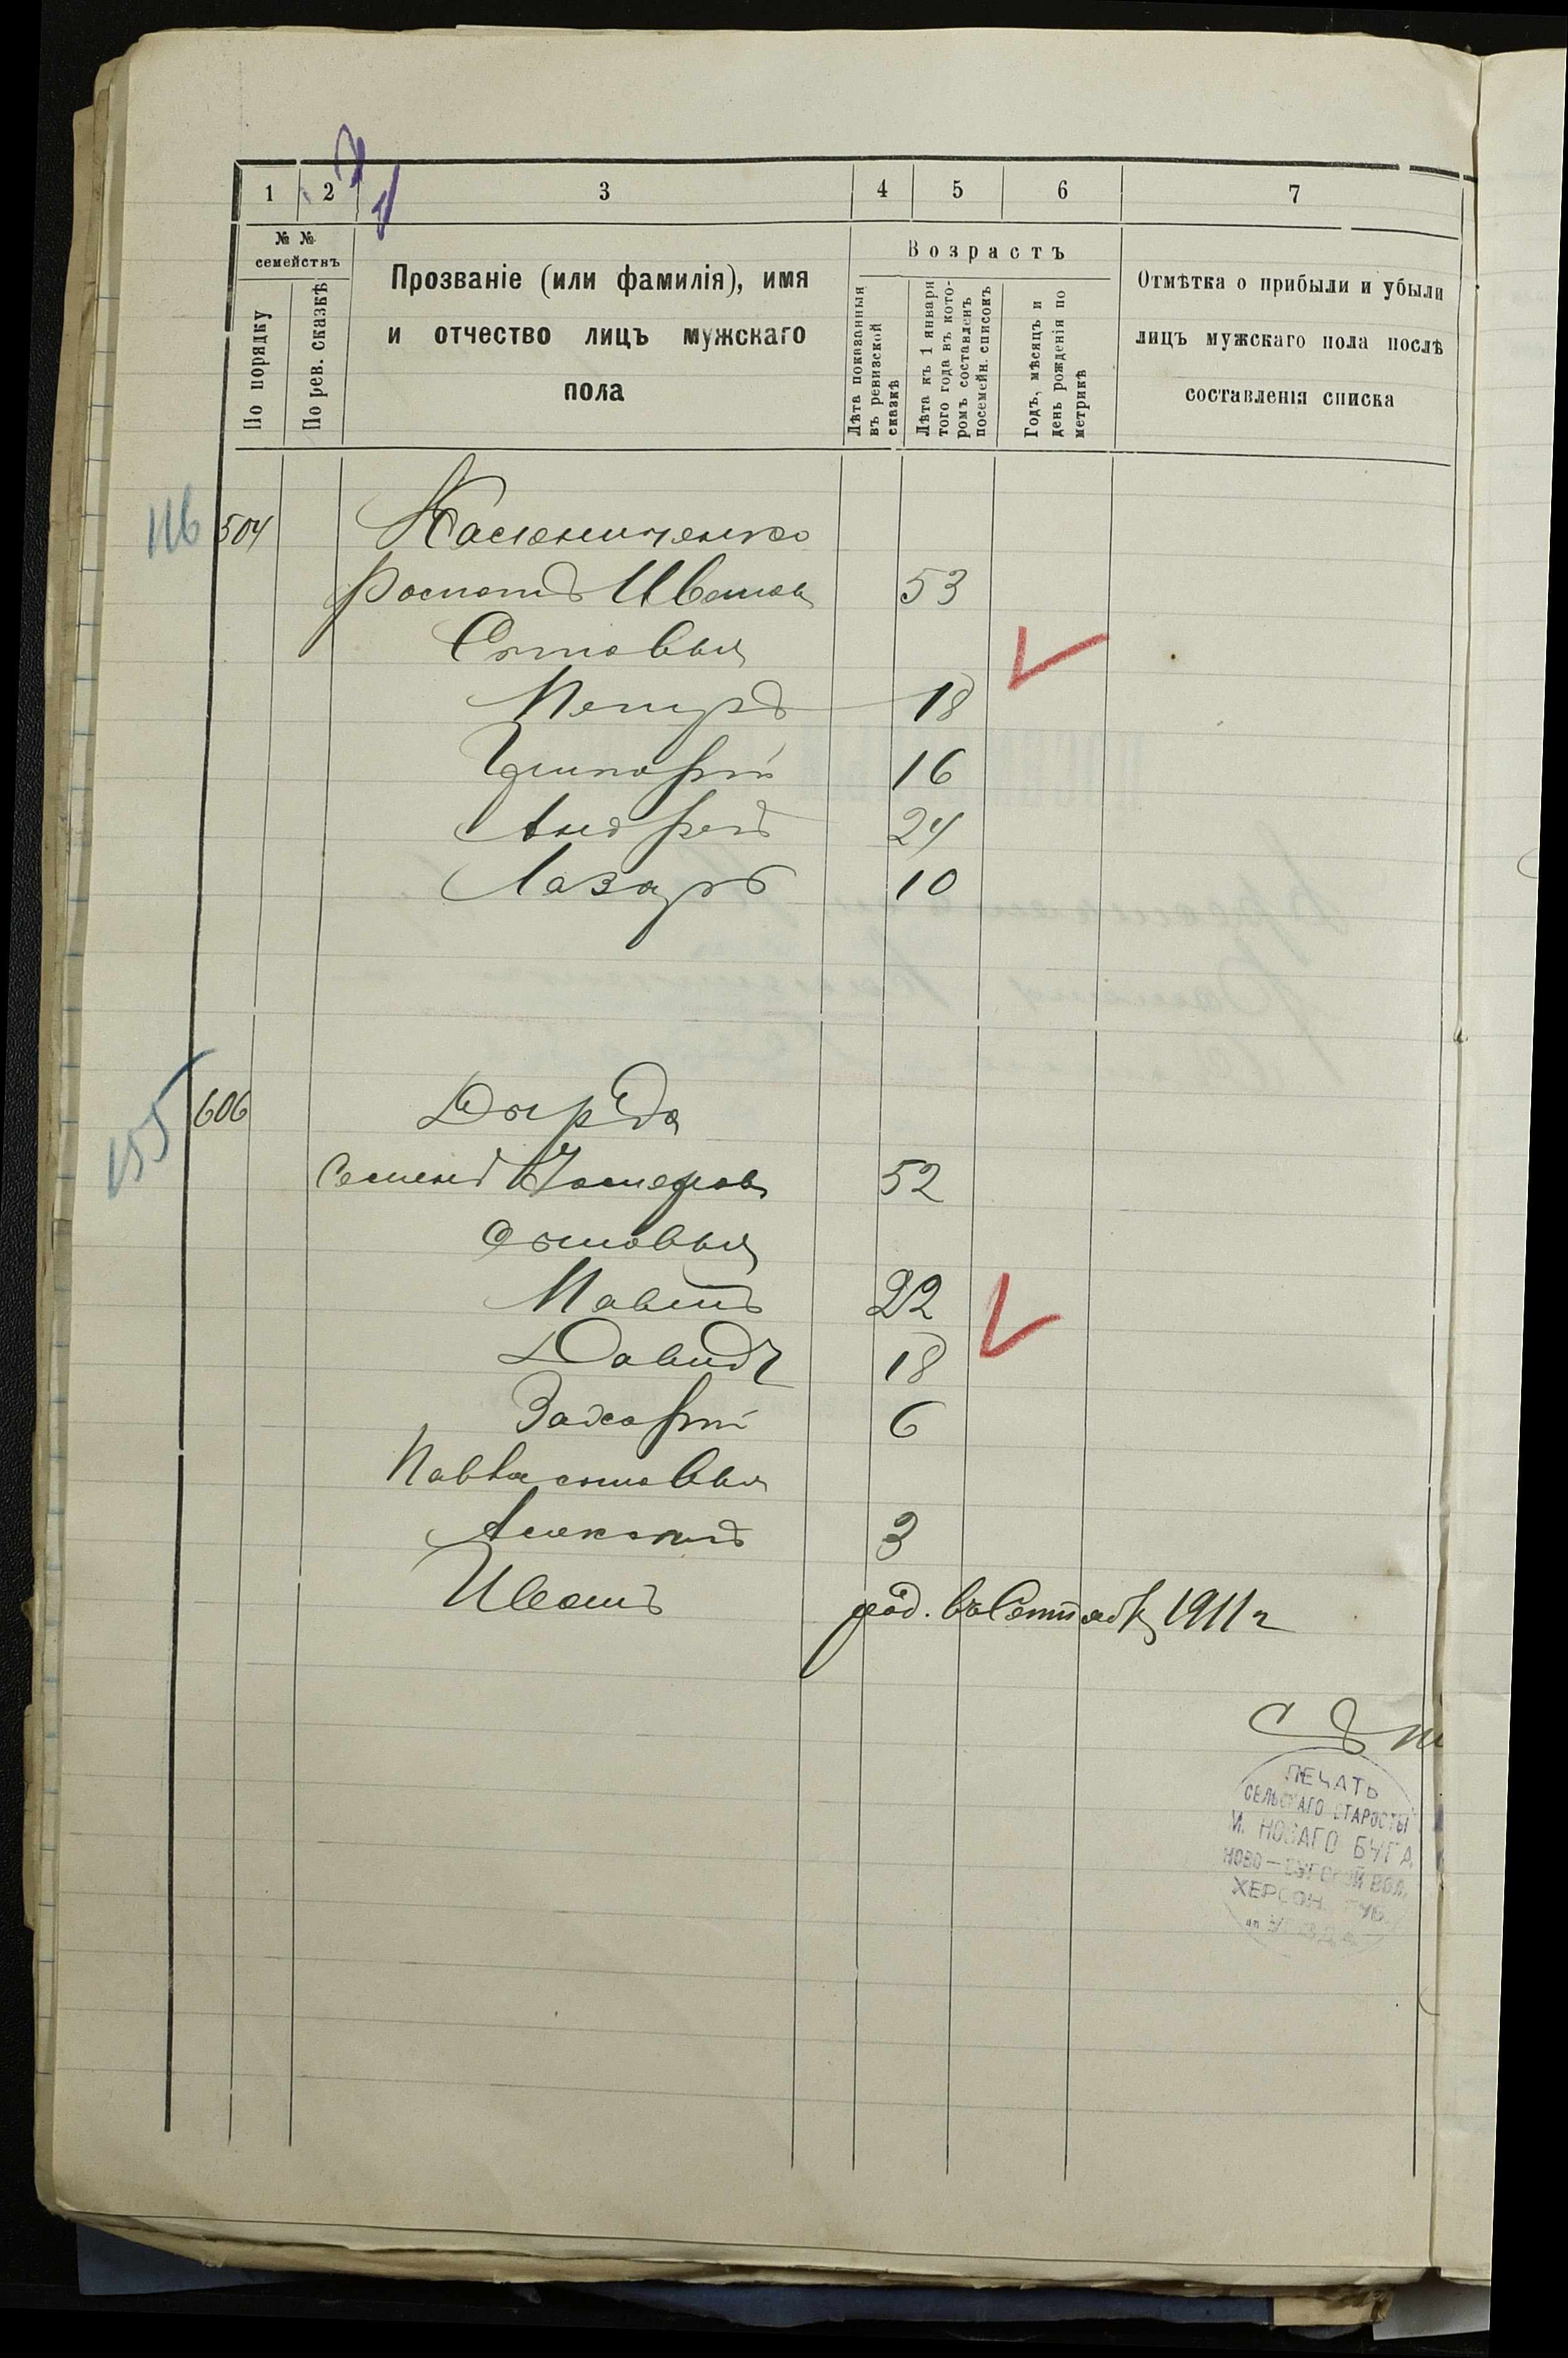 1 2 3 4 5 6 7
№ № семействъ
По порядку
По рев. сказкѣ
Прозваніе (или фамилія), имя
и отчество лицъ мужскаго
пола
Возрастъ
Лѣта показанныя
въ ревизской
сказкѣ
Лѣта къ 1 января
того года въ кото-
ромъ составленъ
посемейн. списокъ
Годъ, мѣсяцъ и
день рожденія по
метрикѣ
Отмѣтка о прибыли и убыли
лицъ мужскаго пола послѣ
составленія списка
116 504
Иванов 53
Сыновья
Петръ 18
Григорій 16
Андрей 24
Лазарь 10
155 606 Дырда
Семенъ 52
сыновья
Павелъ 22
Давидъ 18
Захарій 6
Павла сыновья
Алексей 3
Иванъ род. въ Сентябр 1911 г
ПЕЧАТЬ
СЕЛЬСКАГО СТАРОСТЫ
М. НОВАГО БУГА
НОВО-БУГСКОЙ ВОЛ.
ХЕРСОН. ГУБ.
УѢЗДА